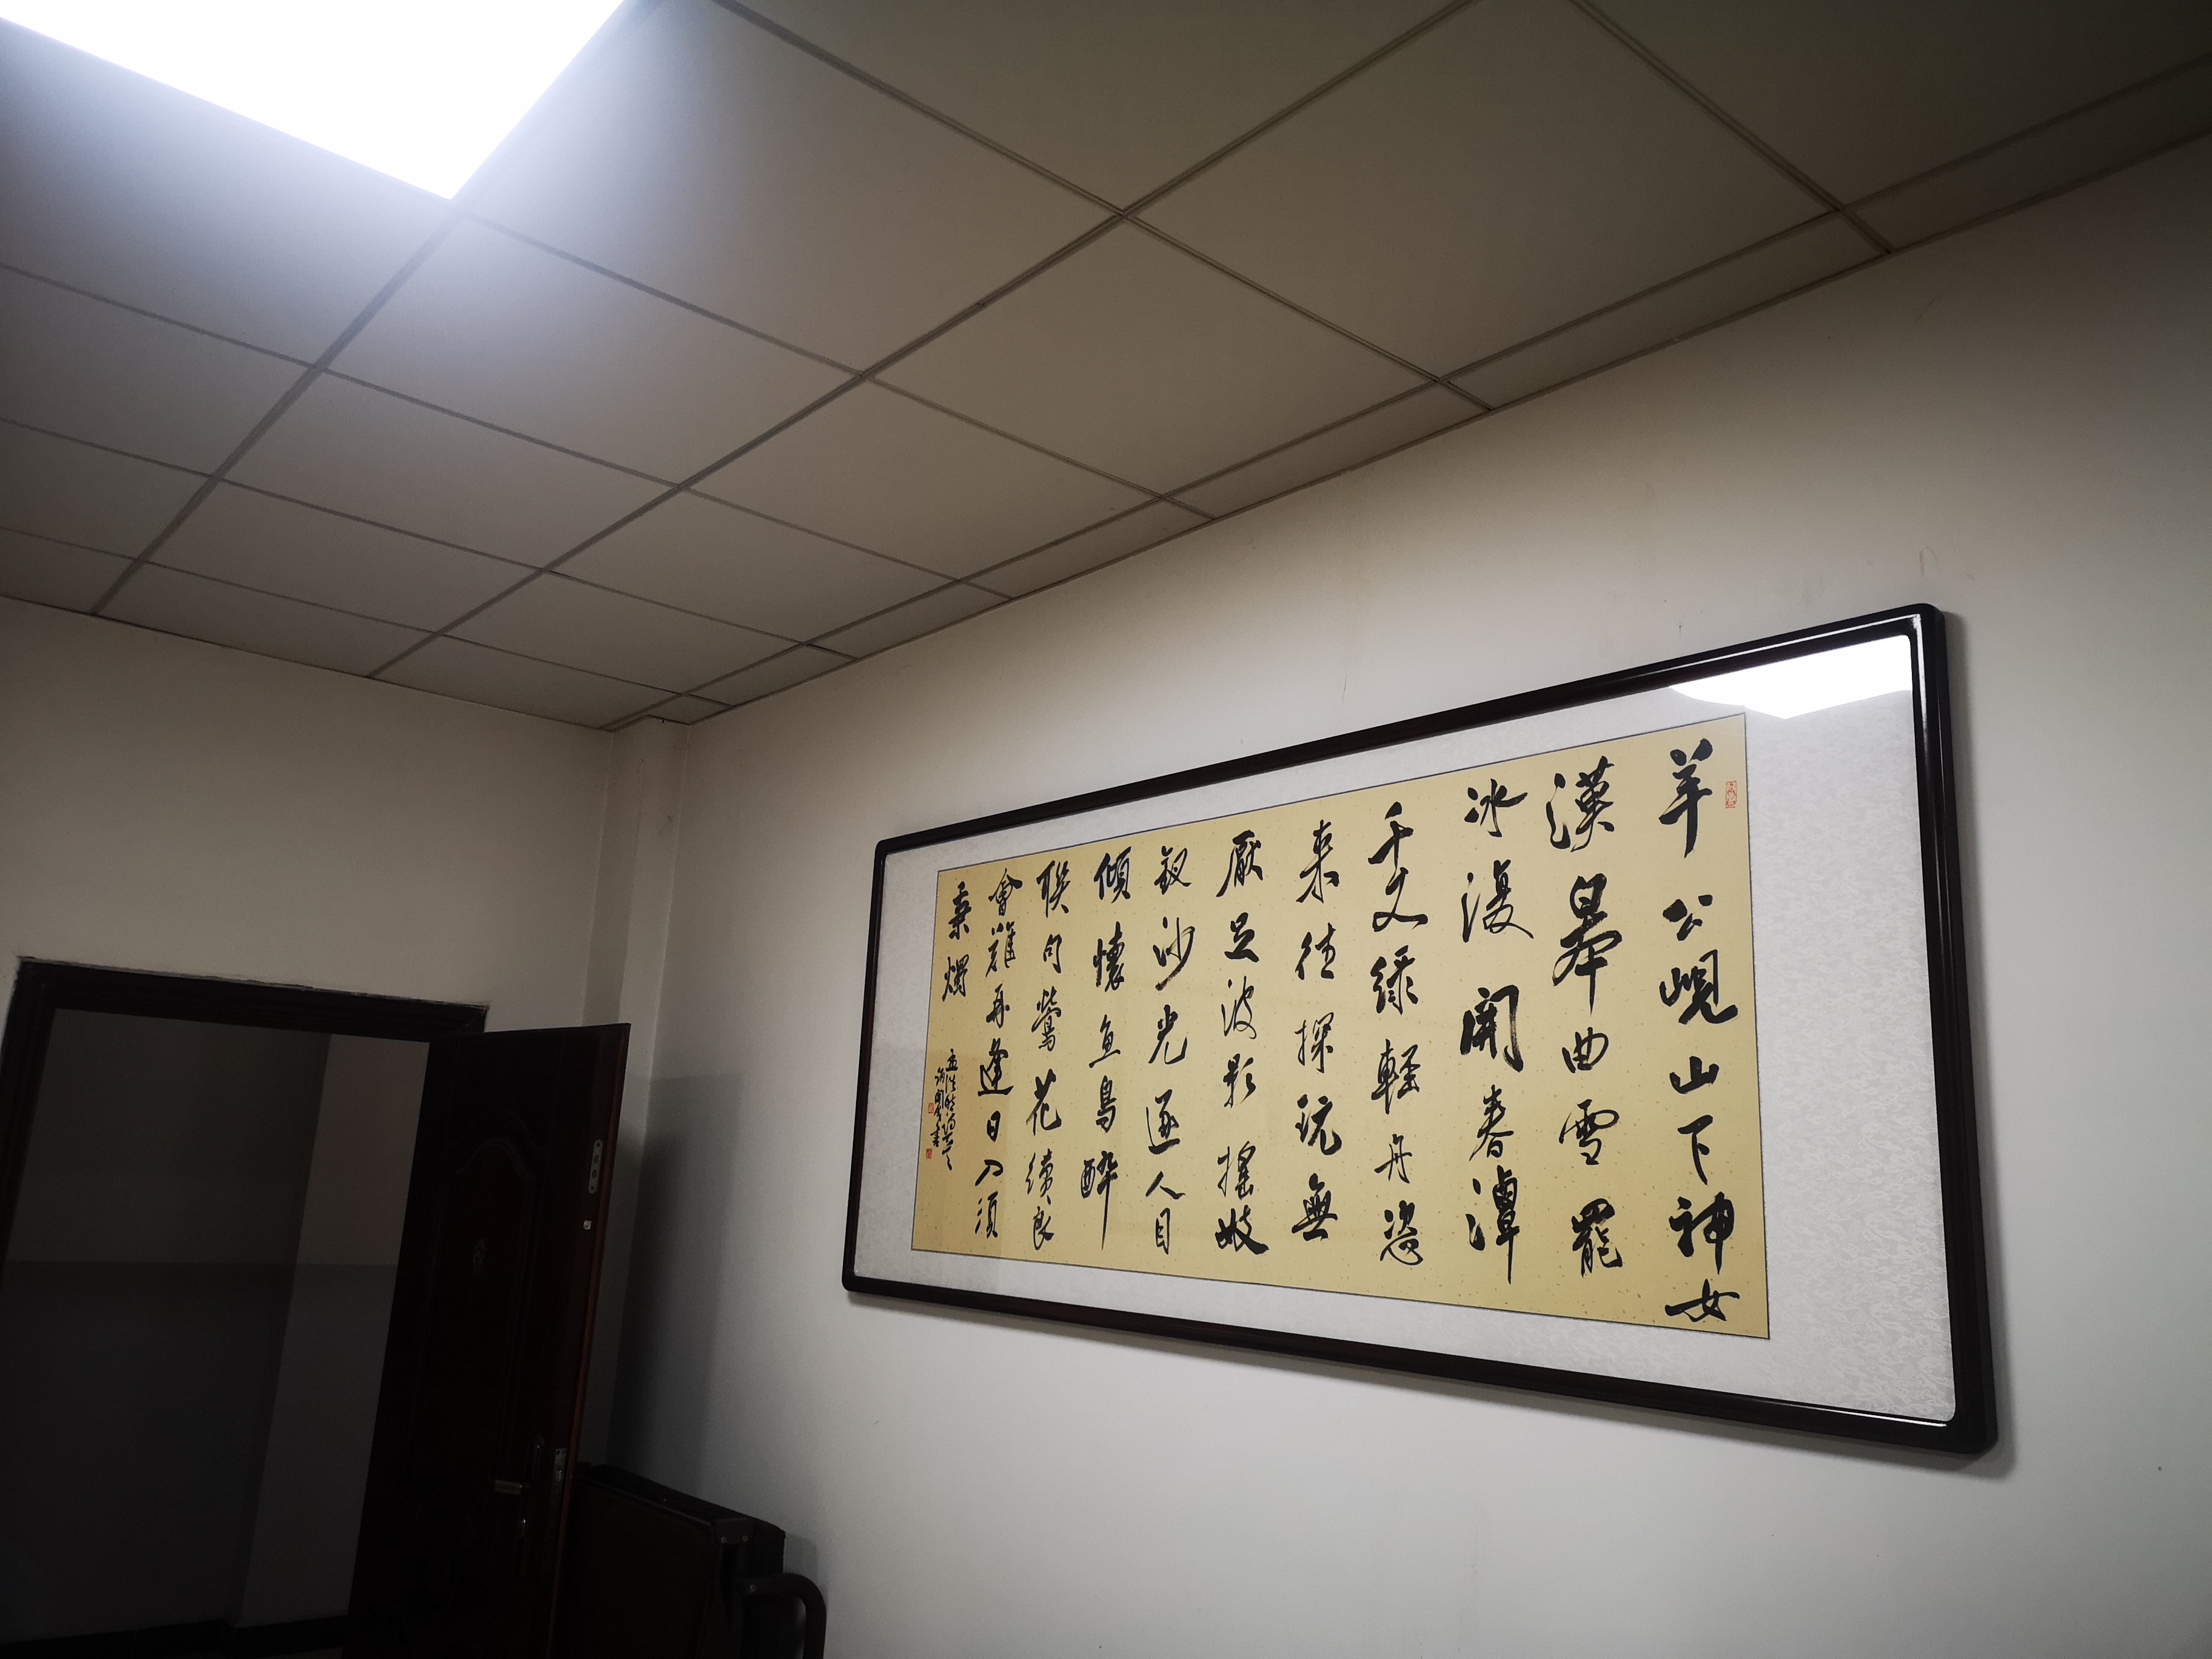 羊公峴山下神女
漢皋曲雪罷
冰復開春潭
千丈綠輕舟恣
來往探玩無
厭足波影搖妓
釵沙光逐人目
傾懷魚鳥醉
聯句鶯花續良
會難再逢日入須
秉燭